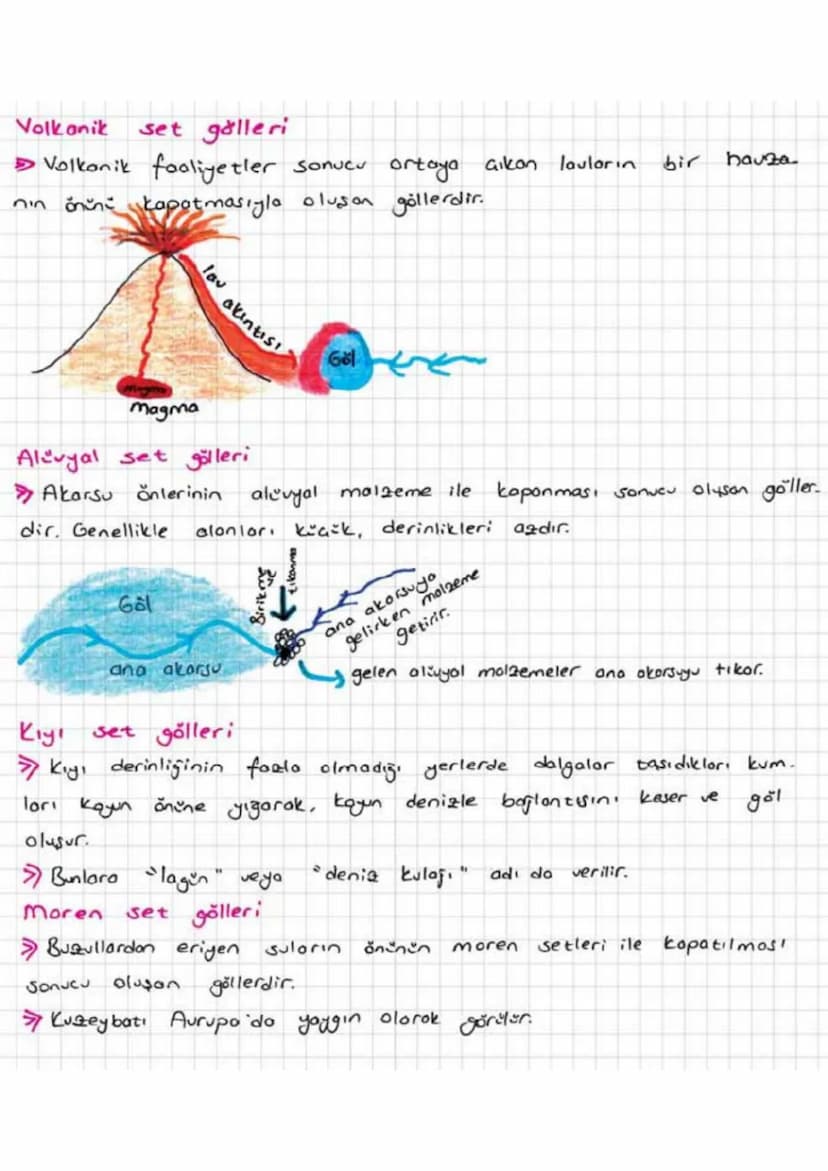 Volkanik set gölleri
Volkanik faaliyetler sonucu ortaya çıkan lavların bir havza-
nın önünü kapatmasıyla oluşan göllerdir.
lav akıntısı
Göl
magma
magma
Alüvyal set gölleri
Akarsu önlerinin alüvyal malzeme ile kapanması sonucu oluşan göller-
dir. Genellikle alanları küçük, derinlikleri azdır.
Birikme ve
tıkanma
Göl
ana akarsuya
gelirken malzeme
getirir.
ana akarsu
gelen alüvyal malzemeler ana akarsuyu tıkar.
Kıyı set gölleri
Kıyı derinliğinin fazla olmadığı yerlerde dalgalar taşıdıkları kum-
ları koyun önüne yığarak, koyun denizle bağlantısını keser ve göl
oluşur.
Bunlara "lagün" veya "deniz kulağı" adı da verilir.
Moren set gölleri
Buzullardan eriyen suların önünün moren setleri ile kapatılması
sonucu oluşan göllerdir.
Kuzeybatı Avrupa'da yaygın olarak görülür.